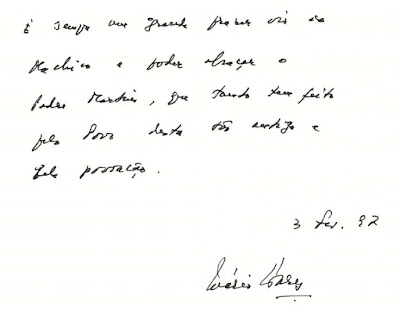 É sempre um grande prazer vir ao
Machico e poder abraçar o
Padre Martins, que tanto tem feito
pelo Povo desta tão antiga e
bela povoação.
3 Fev. 92
Mário Soares